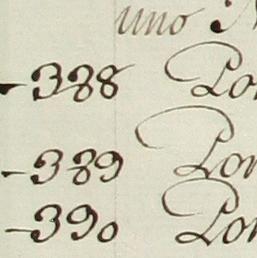 uno
-388 Por
-389 Por
-390 Por